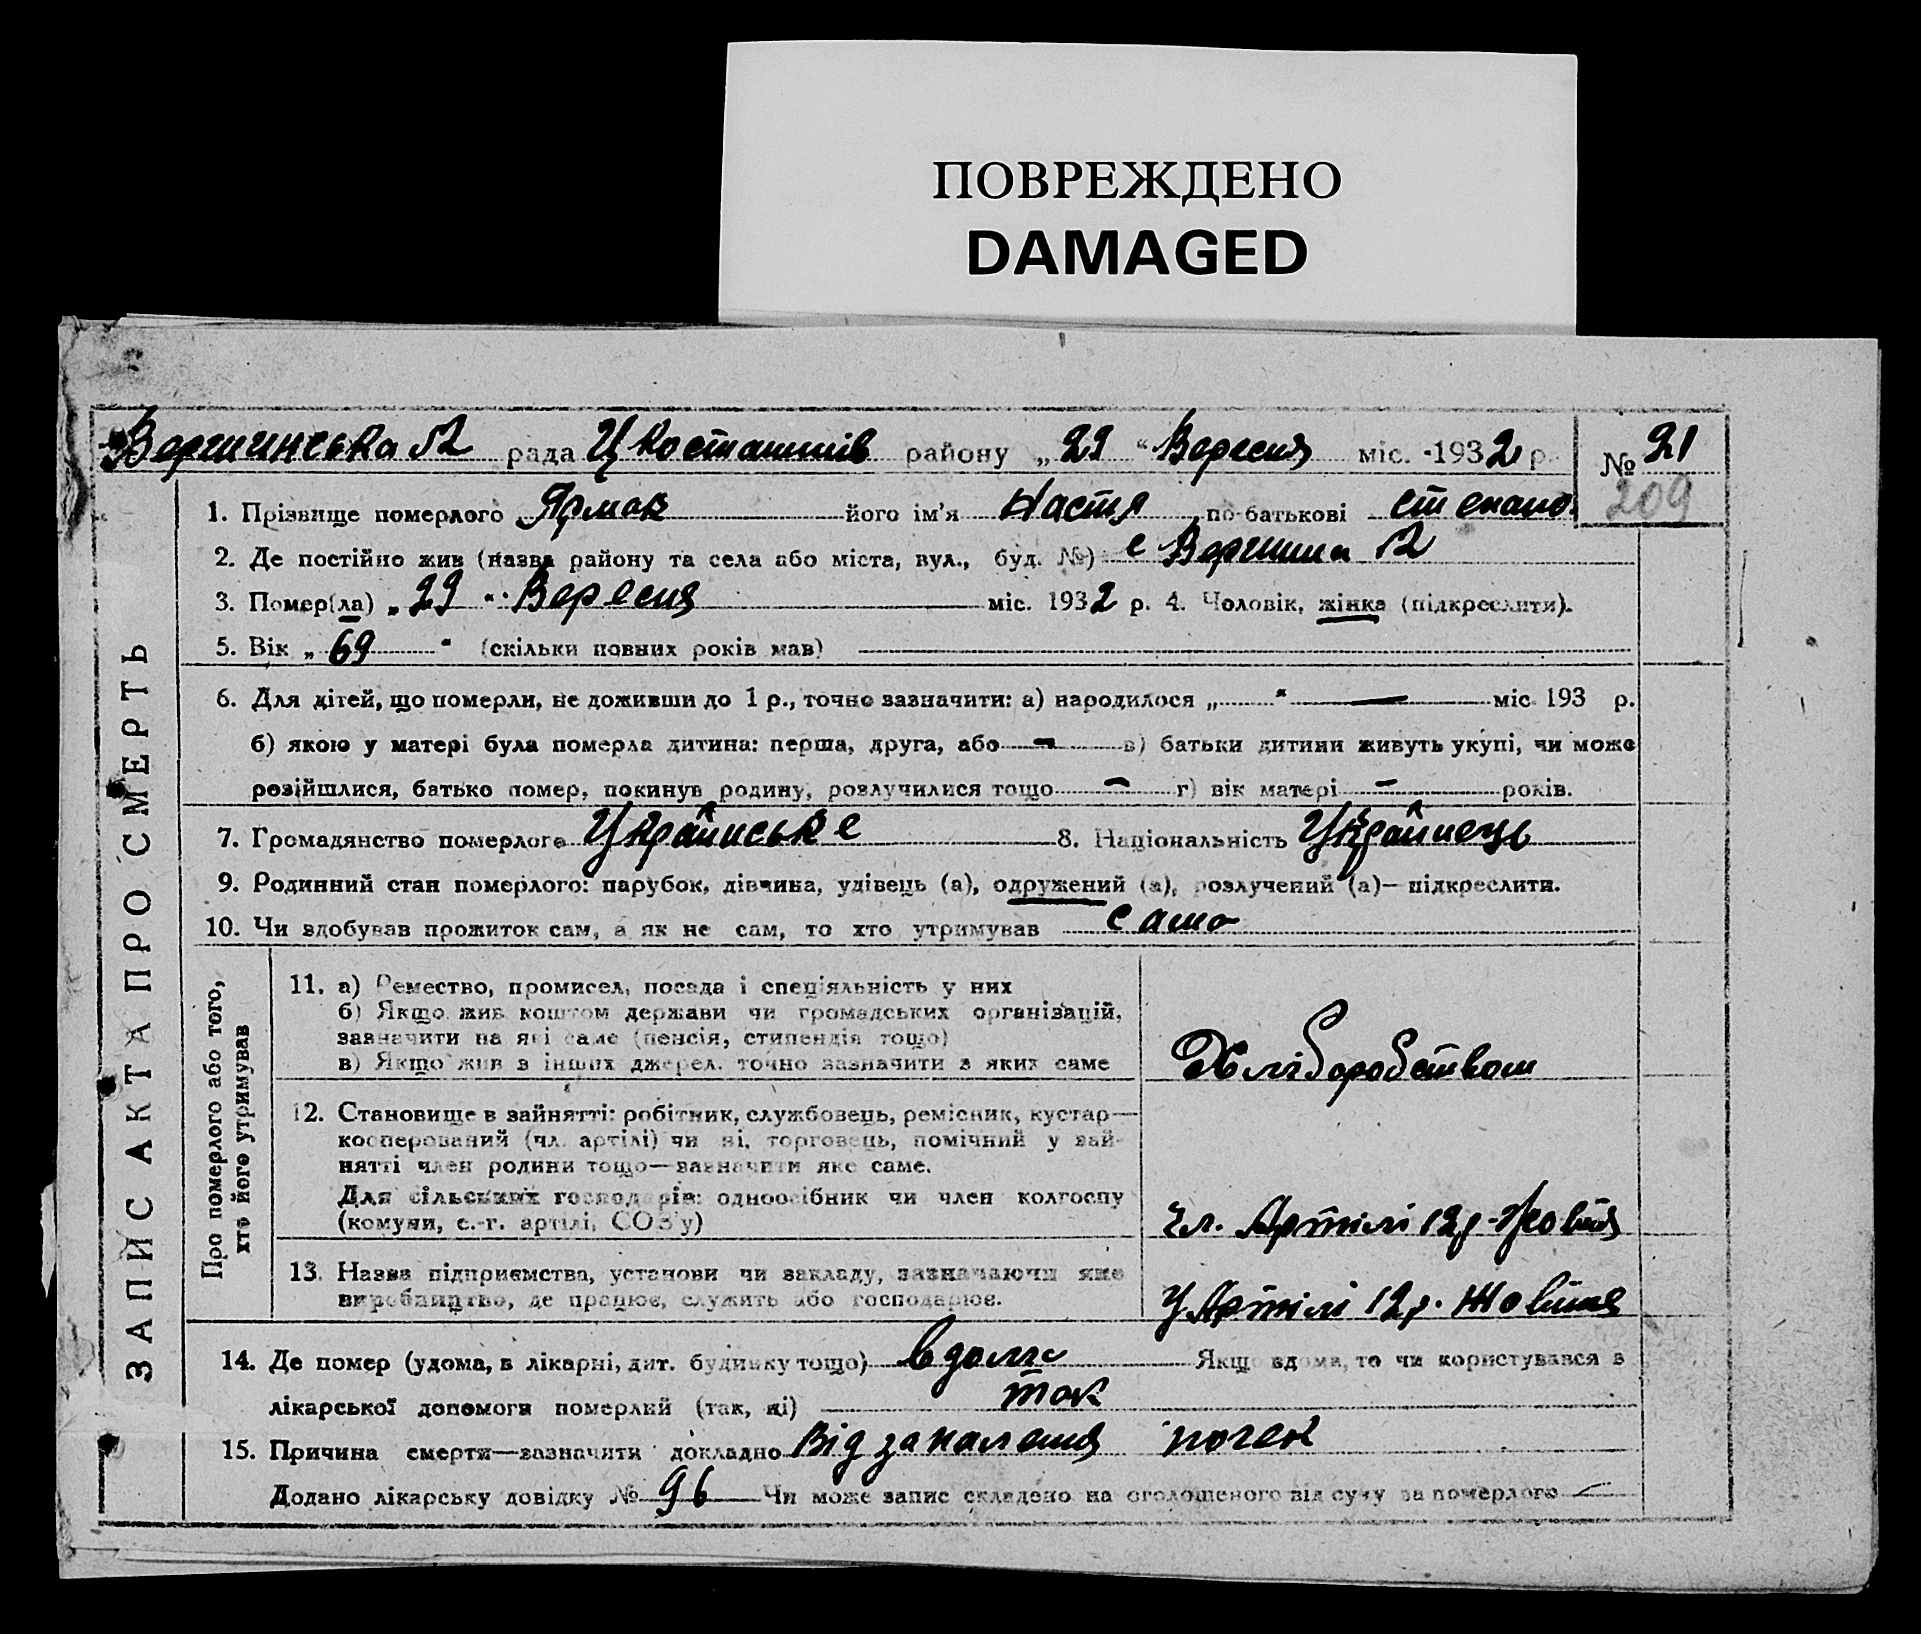 ПОВРЕЖДЕНО
DAMAGED
Вершинська №2 рада Ц Косташтів району „29" Вересня міс. 1932 р. № 21
209
1. Прізвище померлого Ярмак його ім'я Настя по-батькові степано.
2. Де постійно жив (назва району та села або міста, вул., буд. №) с Вершина №2
3. Помер(ла) „29" Вересня міс. 1932 р. 4. Чоловік, жінка (підкреслити).
5. Вік „69" (скільки повних років мав)
6. Для дітей, що померли, не доживши до 1 р., точно зазначити: а) народилося „ " — міс. 193 р.
б) якою у матері була померла дитина: перша, друга, або — в) батьки дитини живуть укупі, чи може
розійшлися, батько помер, покинув родину, розлучилися тощо — г) вік матері — років.
7. Громадянство померлого Українське 8. Національність Українець
9. Родинний стан померлого: парубок, дівчина, удівець (а), одружений (а), розлучений (а)— підкреслити.
10. Чи здобував прожиток сам, а як не сам, то хто утримував само
ЗАПИС АКТА ПРО СМЕРТЬ
Про померлого або того,
хто його утримував
11. а) Ремество, промисел, посада і спеціяльність у них
б) Якщо жив коштом держави чи громадських організацій,
зазначити на які саме (пенсія, стипендія тощо)
в) Якщо жив з інших джерел. точно зазначити з яких саме
Хліборобством
12. Становище в зайнятті: робітник, службовець, ремісник, кустар—
кооперований (чл. артілі) чи ні, торговець, помічний у зай-
нятті член родини тощо—зазначити яке саме.
Для сільських господарів: одноосібник чи член колгоспу
(комуни, с.-г. артілі, СОЗ'у)
чл. Артілі 12р. Жовтня
13. Назва підприємства, установи чи закладу, зазначаючи яке
виробництво, де працює, служить або господарює.
У Артілі 12р. Жовтня
14. Де помер (удома, в лікарні, дит. будинку тощо) вдома Якщо вдома, то чи користувався з
лікарської допомоги померлий (так, ні) так
15. Причина смерти—зазначити докладно Від запалення почек
Додано лікарську довідку № 96 Чи може запис складено на оголошеного від суду за померлого —